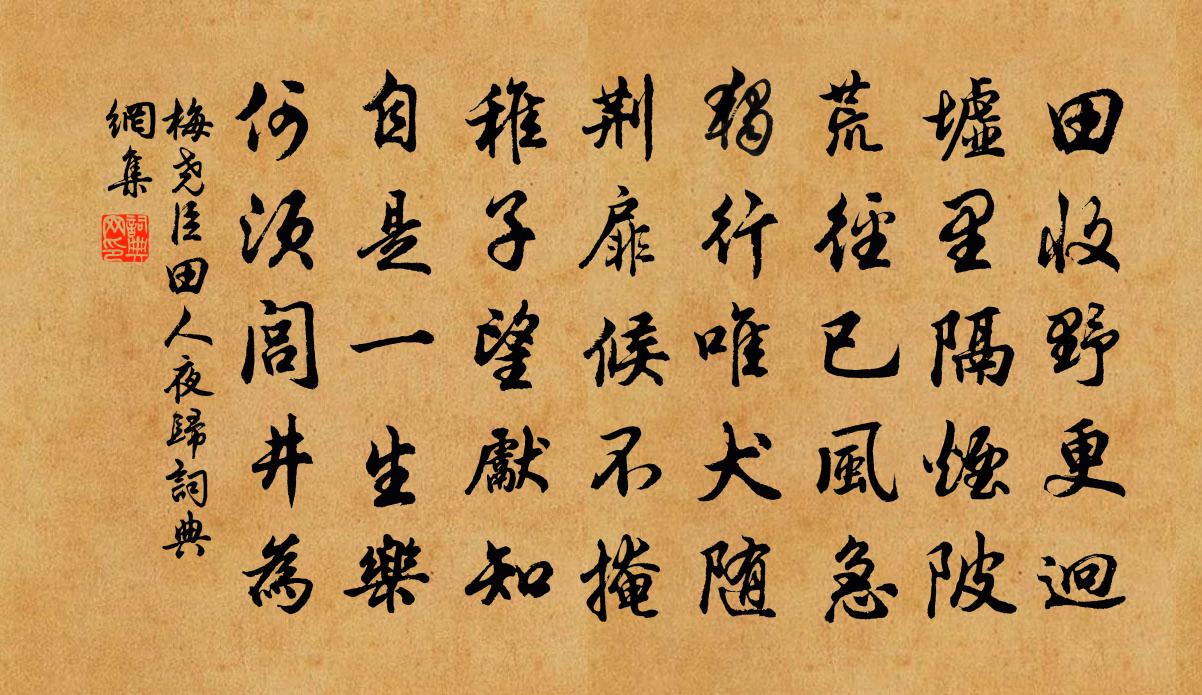 田收野更迥
墟里隔煙陂
荒徑已風急
獨行唯犬随
荆扉候不掩
稚子望獻知
自是一生樂
何須閭井為
梅尭臣田人夜歸詞典
網集
詞典
网印